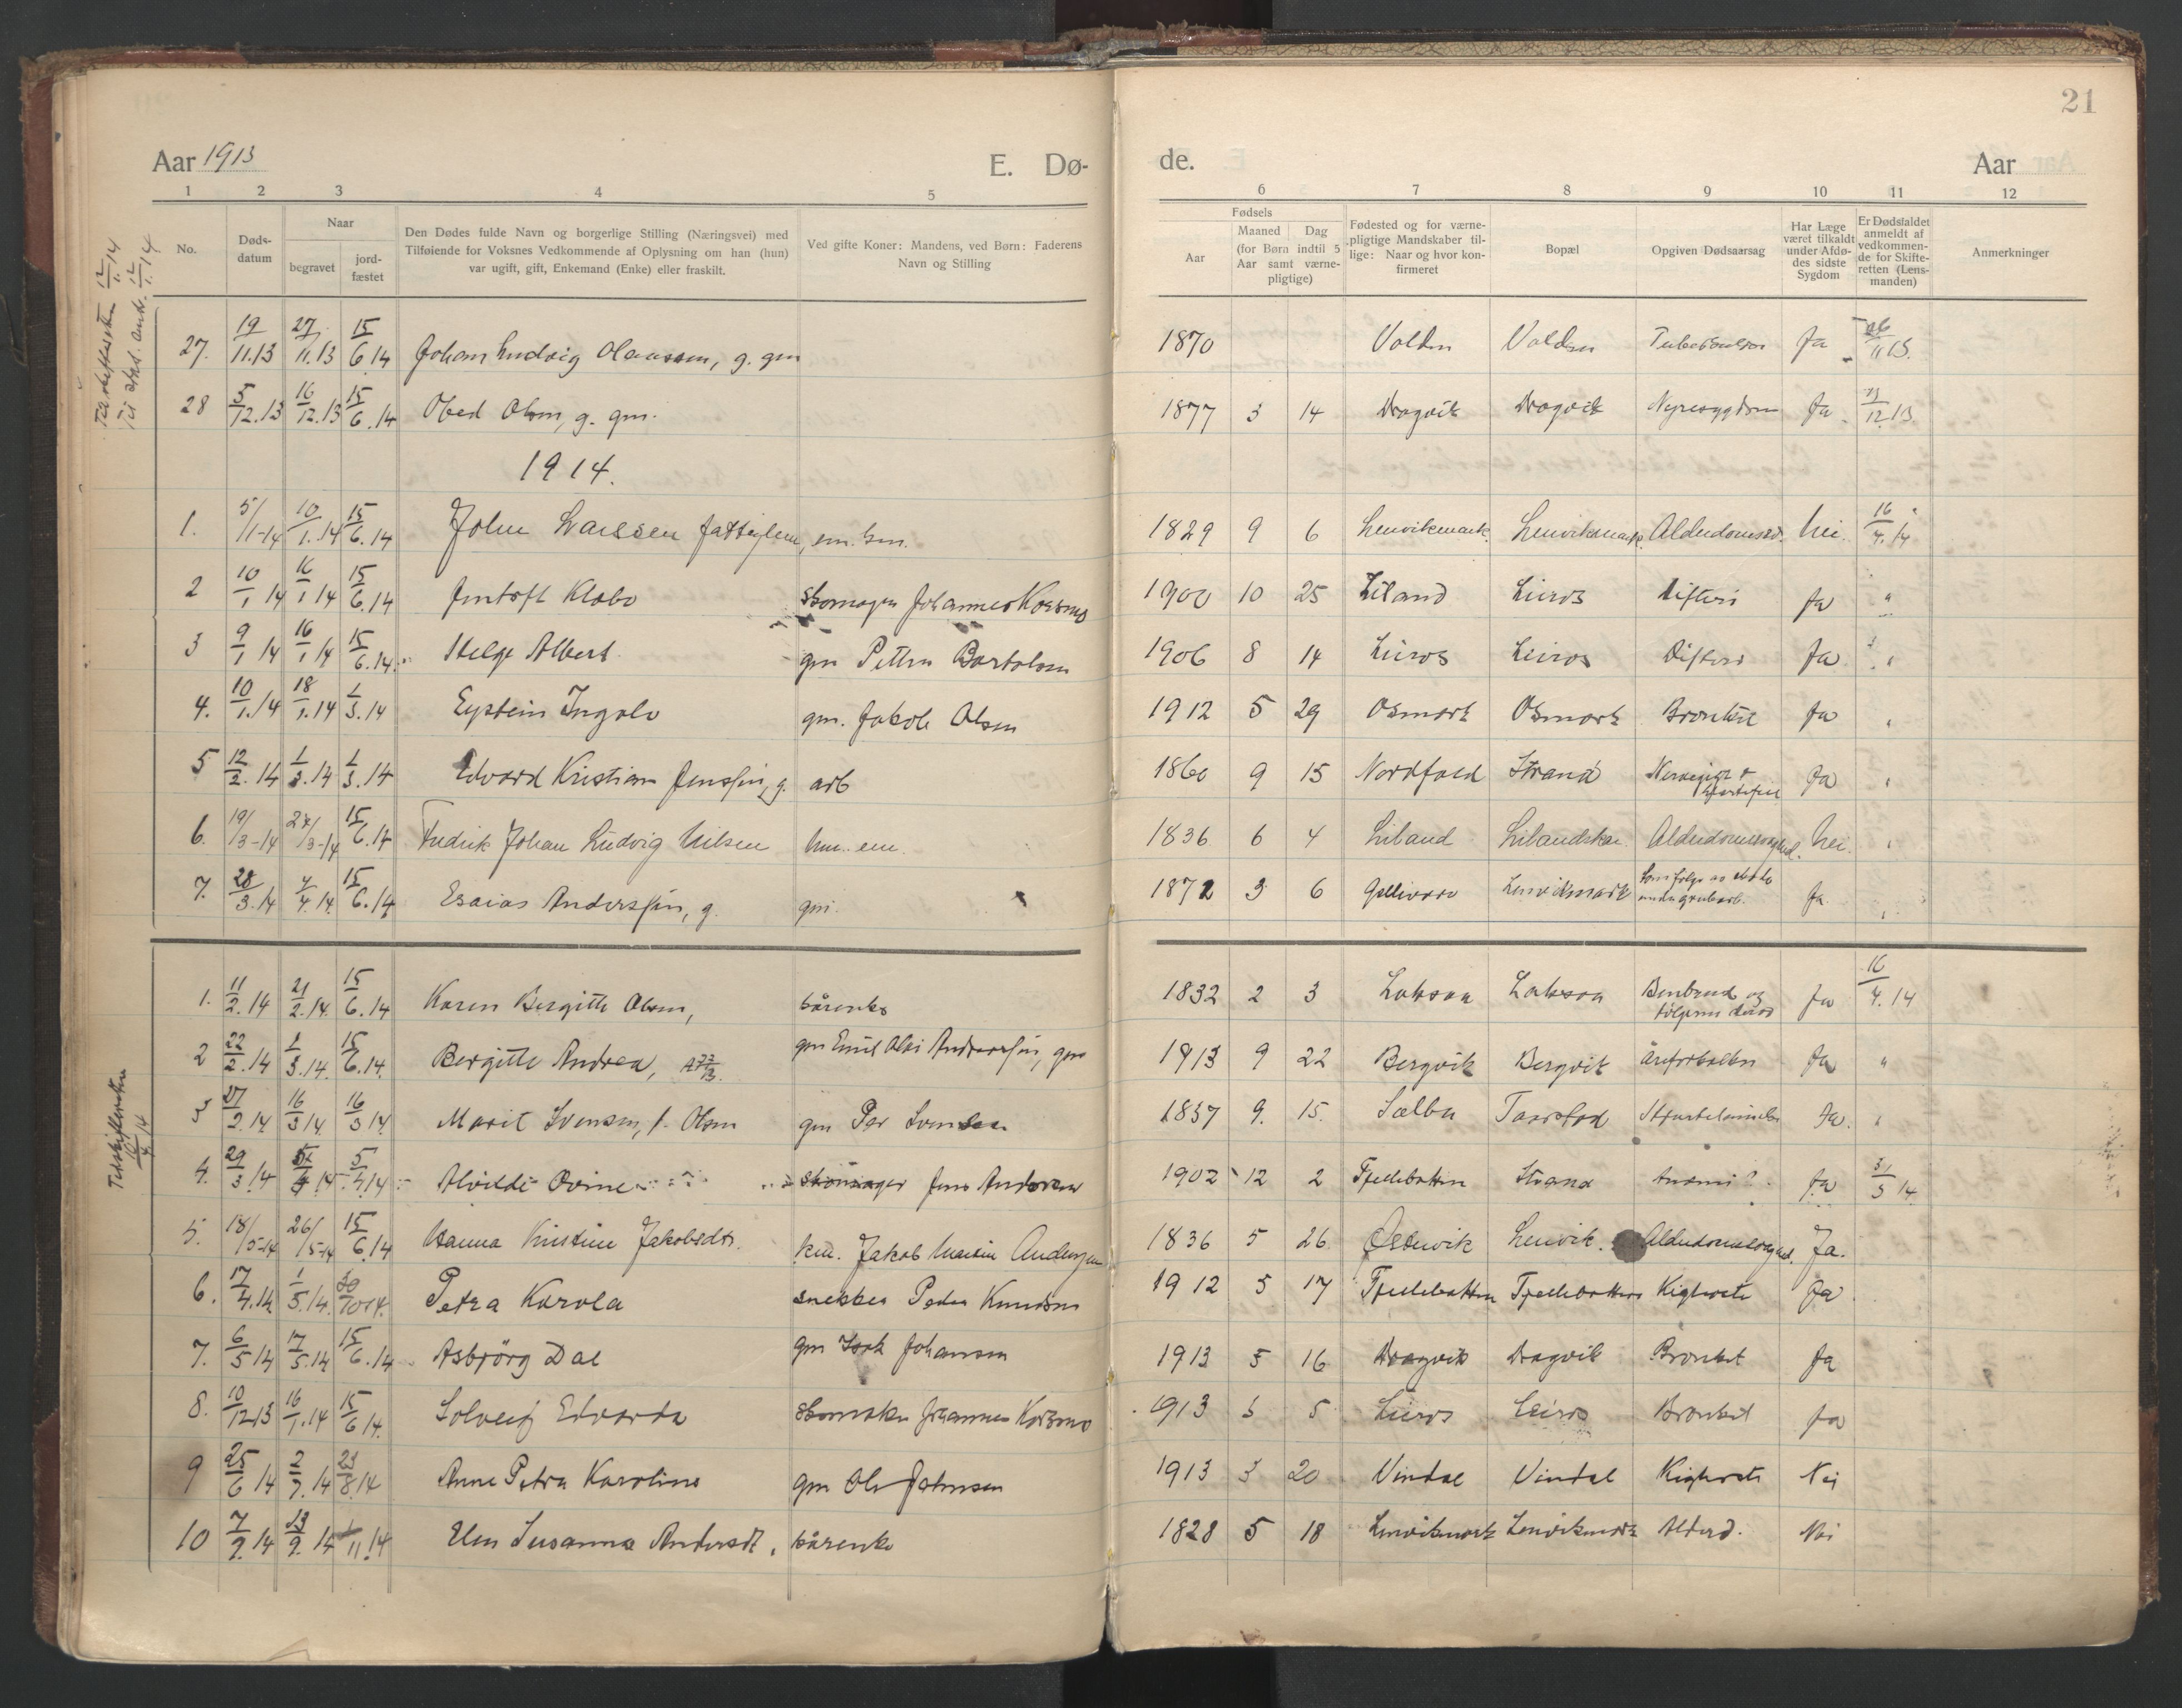 21
Aar 1913 E. Dø- de. Aar
1 2 3 4 5 6 7 8 9 10 11 12
No. Døds-datum Naar begravet jord-fæstet Den Dødes fulde Navn og borgerlige Stilling (Næringsvei) med Tilføiende for Voksnes Vedkommende af Oplysning om han (hun) var ugift, gift, Enkemand (Enke) eller fraskilt. Ved gifte Koner: Mandens, ved Børn: Faderens Navn og Stilling Aar Fødsels Maaned Dag (for Børn indtil 5 Aar samt værne-pligtige) Fødested og for værne-pligtige Mandskaber til-lige: Naar og hvor kon-firmeret Bopæl Opgiven Dødsaarsag Har Læge været tilkaldt under Afdø-des sidste Sygdom Er Dødsfaldet anmeldt af vedkommen-de for Skifte-retten (Lens-manden) Anmerkninger
27. 19/11.13 27/11.13 15/6.14 Johan Ludvig Olaussen, g. gm 1870 Volden Volden Tuberkulose Ja 26/11 13.
28 5/12.13 16/12.13 15/6.14 Obed Olsen, g. gm. 1877 3 14 Dragvik Dragvik Nyresygdom Ja 12.13
1914.
1. 5/1-14 10/1.14 15/6.14 John Larssen fattiglem, em. 1829 9 6 Lenvikmark. Lenvikmark. Alderdomssv. Nei. 16/4.14
2 10/1 14 16/1 14 15/6.14 Jentoft Klabo Skomager Johannes Korsmo 1900 10 25 Liland Leiros Difteri Ja "
3 9/1 14 16/1 14 15/6.14 Helge Albert gm Petter Bartolsen 1906 8 14 Leiros Leiros Difteri Ja "
4. 10/1.14 18/1.14 1/3.14 Eystein Ingolv gm. Jakob Olsen 1912 5 29 Osmark Osmark Bronkit Ja "
5 12/2.14 1/3.14 1/3.14 Edvard Kristian Jenssen, g. arb 1860 9 15 Nordfold Strand Ja "
6. 19/3-14 27/3-14 15/6.14 Fredrik Johan Ludvig Nilsen em. 1836 6 4 Liland Lilandskar. Alderdomssvaghed. Nei. "
7. 28/3.14 4/4.14. 15/6.14 Esaias Anderssen, g. gm. 1872 3 6 Gellivare Lenvikmark Som følge av skade under grubearb. Ja "
1. 11/2.14 21/2.14. 15/6.14 Karen Bergitte Olsen, kårenke 1832 2 3 Laksaa Laksaa Benbrud og følgerne derav Ja 16/4.14
2 22/2.14 1/3.14. 15/6.14. Bergitte Andrea, gm Emil Andreassen, gm 1913 9 22 Bergvik Bergvik Ja "
3 27/2.14. 16/3 14. 16/3 14. Marit Svensen, f. Olsen gm Per Svensen 1837 9. 15. Sælbu Taarstad Hjertelammelse Ja. "
4. 29/3.14 5/4 14. 5/4.14 Alvilde Ovine skomager Jens Andersen 1902 12 2 Fjeldbakken Strand Anæmi? Ja 3/5 14.
5. 18/5-14 26/5-14 15/6.14 Hanna Kristine Jakobsdtr. Jakob Martin Andersen 1836 5 26 Østervik Lenvik. Alderdomssvaghed. Ja.
6. 17/4.14 1/5.14. 30/10.14. Petra Karola snekker Peder Knudsen 1912 5 17 Fjeldebakken Fjeldebakken Kighoste Ja
7. 6/5 14 17/5.14 15/6.14 Asbjörg Dal gm Isak Johansen 1913 5 16 Dragvik Dragvik Bronkit Ja
8. 10/12 13 16/1.14 15/6 14. Solveig Edvarda Skomaker Johannes Korsmo 1913 5 5 Leiros Leiros Bronkit Ja
9 25/6 14 2/7.14 23/8.14 Anne Petra Karoline gm Ole Johnsen 1913 3 20 Vindal Vindal Kighoste Nei
10 7/9.14 13/9.14 1/11.14 Elen Susanna Andersdt. kårenke 1828 5 18 Lenvikmark Lenvikmark Alderd. Nei
Til skifteretten 12/1.14
12/1.14
Til skifteretten 16/4 14